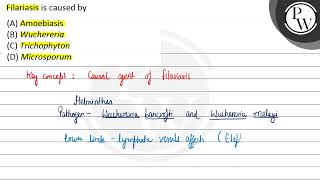 Filariasis is caused by
(A) Amoebiasis
(B) Wuchereria
(C) Trichophyton
(D) Microsporum
PW
Key concept : Causal agent of filariasis
Helminthes
Pathogen - Wuchereria bancrofti and Wuchereria malayi
lower limb - lymphatic vessels affect (Elef